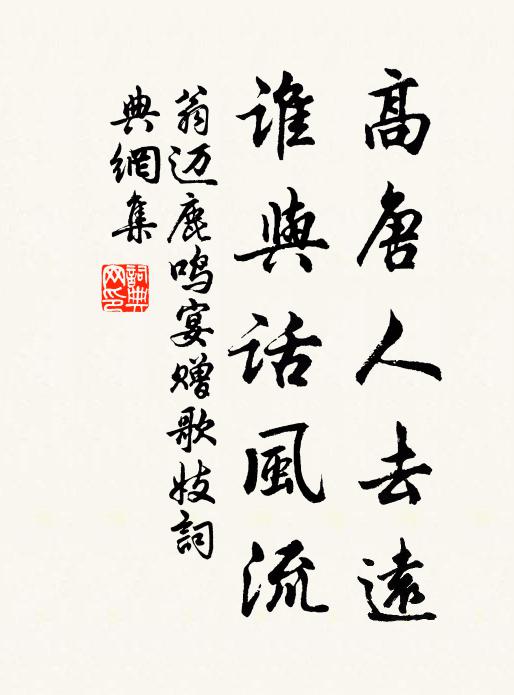 高唐人去遠
誰與話風流
翁迈鹿鸣宴赠歌妓詞
典網集
詞典
网印